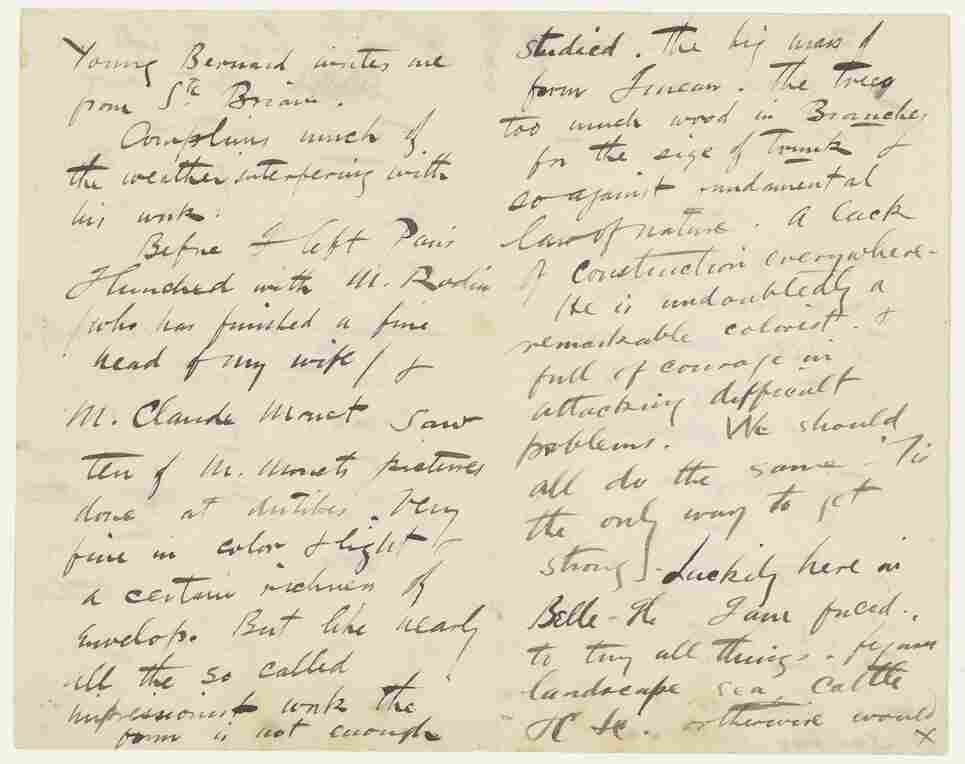 Young Bernard writes me
from St. Briac.
Complains much of
the weather interfering with
his work.
Before I left Paris
I lunched with M. Rodin
(who has finished a fine
head of my wife) &
M. Claude Monet saw
ten of M. Monet's pictures
done at Antibes. Very
fine in color & light &
a certain richness of
Envelop. But like nearly
all the so called
impressionist work the
form is not enough
studied. The big mass of
form
The trees
too much wood in Branches
for the size of trunk &
so against fundamental
law of nature. A lack
of construction everywhere-
He is undoubtedly a
remarkable colorist &
full of courage in
attacking difficult
problems. We should
all do the same. 'Tis
the only way to get
strong - Luckily here in
Belle-Ile I am forced
to try all things.
landscape sea, cattle
&c &c. otherwise would
x